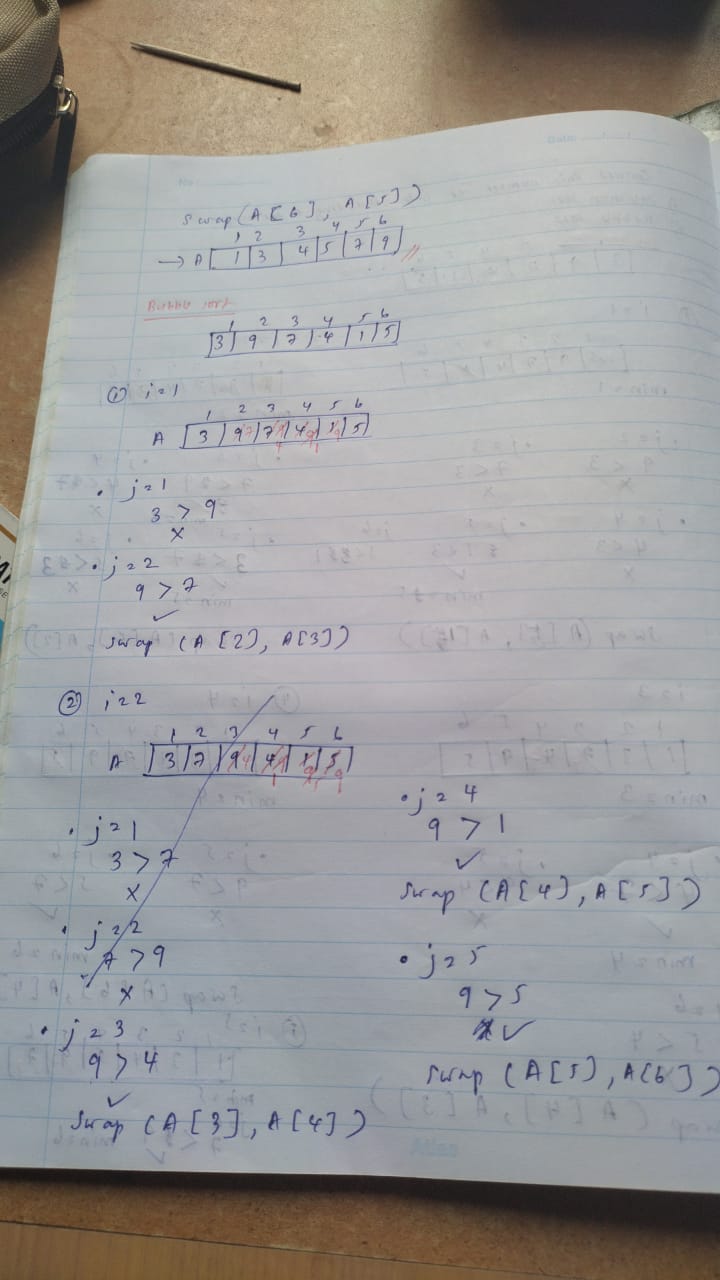 Date:
No
Swap (A[6], A[5])
1 2 3 4 5 6
→ A | 1 | 3 | 4 | 5 | 7 | 9 | //
Bubble sort
1 2 3 4 5 6
| 3 | 9 | 7 | 4 | 1 | 5 |
① i=1
1 2 3 4 5 6
A | 3 | 9 7 | 7 9 4 | 4 9 1 | 1 9 | 5 |
• j=1
3 > 9
x
• j=2
9 > 7
✓
swap (A[2], A[3])
② i=2
1 2 3 4 5 6
A | 3 | 7 | 9 4 | 4 9 1 | 1 9 | 5 9 |
• j=1
3 > 7
x
• j=2
7 > 9
x
• j=3
9 > 4
✓
Swap (A[3], A[4])
• j=4
9 > 1
✓
Swap (A[4], A[5])
• j=5
9 > 5
✓
Swap (A[5], A[6])
Atlas